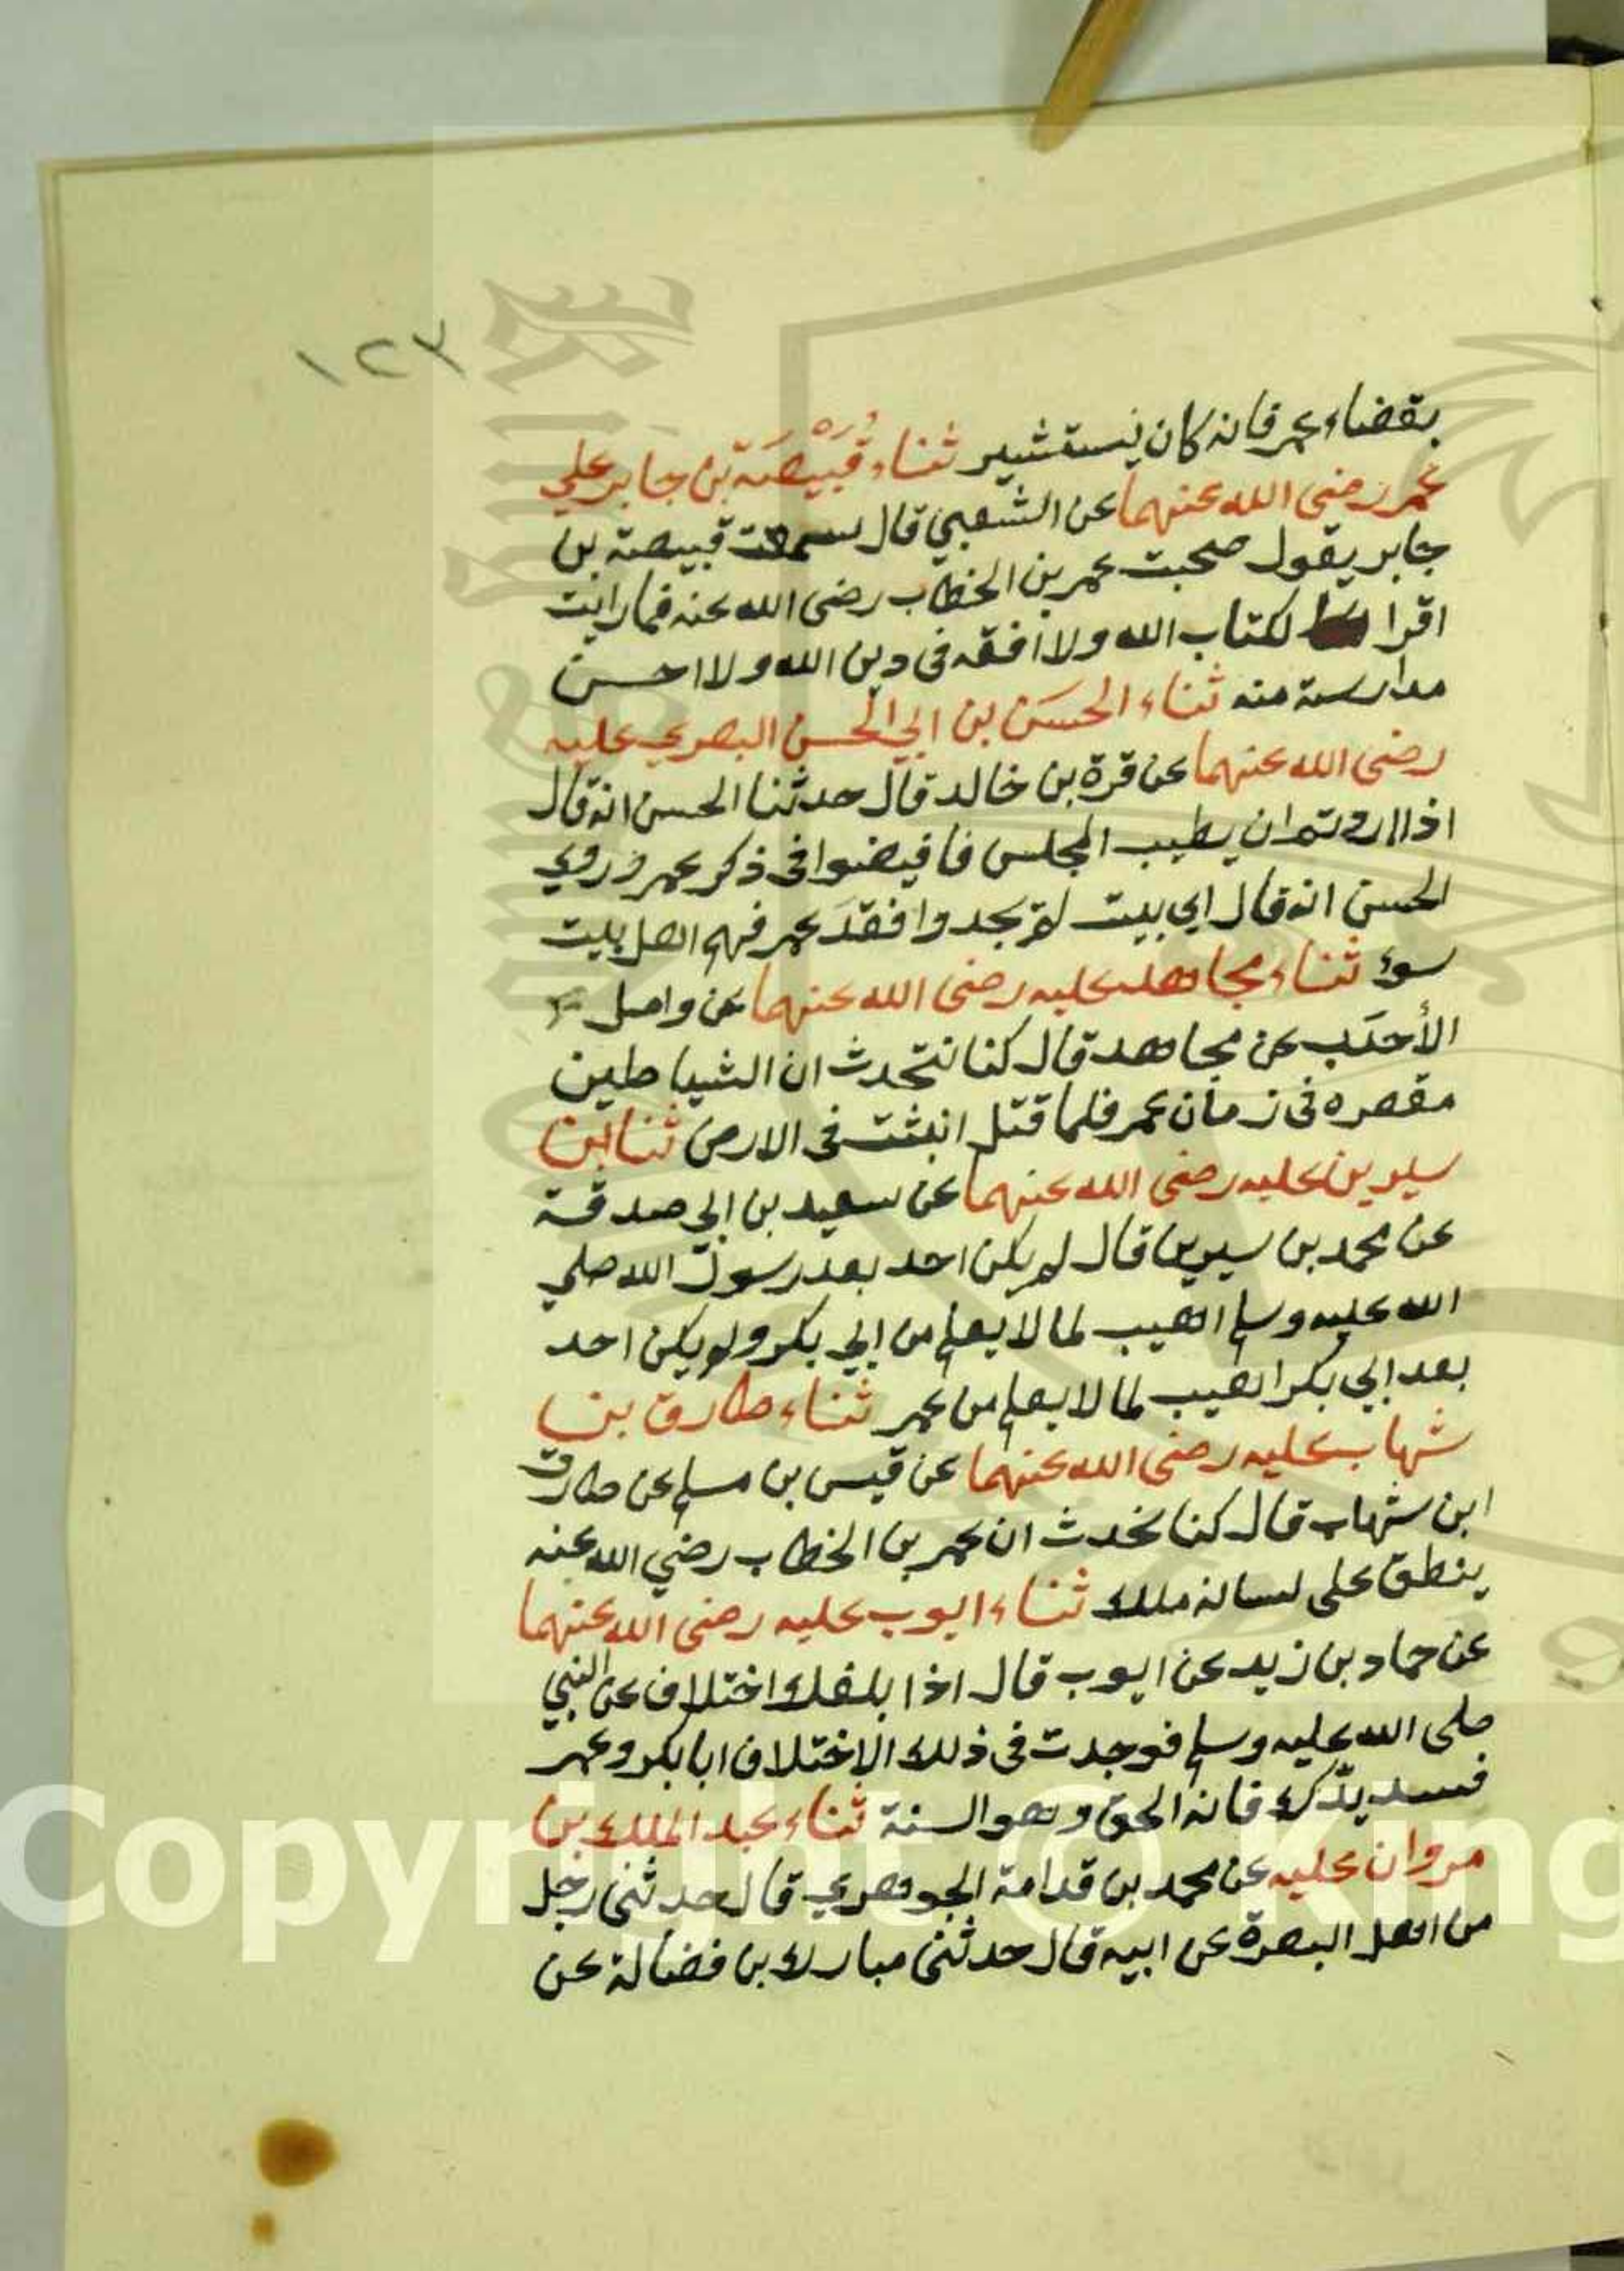 ١٢٣
بقضاء عمر فانه كان يستشير ثناء قَبِيْصَة بن جابر علي
عمر رضي الله عنهما عن الشعبي قال سمعت قبيصة بن
جابر يقول صحبت عمر بن الخطاب رضي الله عنه فما رايت
اقرا لكتاب الله ولا افقه في دين الله ولا احسن
مدارسة منه ثناء الحسَن بن ابي الحسن البصري عليه
رضي الله عنهما عن قرة بن خالد قال حدثنا الحسن انه قال
اذا اردتم ان يطيب المجلس فافيضوا في ذكر عمر وروي
الحسن انه قال اي بيت لم يجدوا فقدَ عمر فهم اهل بيت
سوء ثناء مجاهد عليه رضي الله عنهما عن واصل
الأحدَب عن مجاهد قال كنا نتحدث ان الشياطين
مقصره في زمان عمر فلما قتل انبثت في الارض ثنا ابن
سيرين عليه رضي الله عنهما عن سعيد بن ابي صدقة
عن محمد بن سيرين قال لم يكن احد بعد رسول الله صلي
الله عليه وسلم اهيب لما لا يعلم من ابي بكر ولم يكن احد
بعد ابي بكر اهيب لما لا يعلم من عمر ثناء طارق بن
شهاب عليه رضي الله عنهما عن قيس بن مسلم عن طارق
ابن شهاب قال كنا نحدث ان عمر بن الخطاب رضي الله عنه
ينطق على لسانه ملك ثناء ايوب عليه رضي الله عنهما
عن حماد بن زيد عن ايوب قال اذا بلغك اختلاف عن النبي
صلى الله عليه وسلم فوجدت في ذلك الاختلاف ابا بكر وعمر
فسد يدك فانه الحق وهو السنة ثناء عبد الملك بن
مروان عليه عن محمد بن قدامة الجوهري قال حدثني رجل
من اهل البصرة عن ابيه قال حدثني مبارك بن فضالة عن
Copyright © King